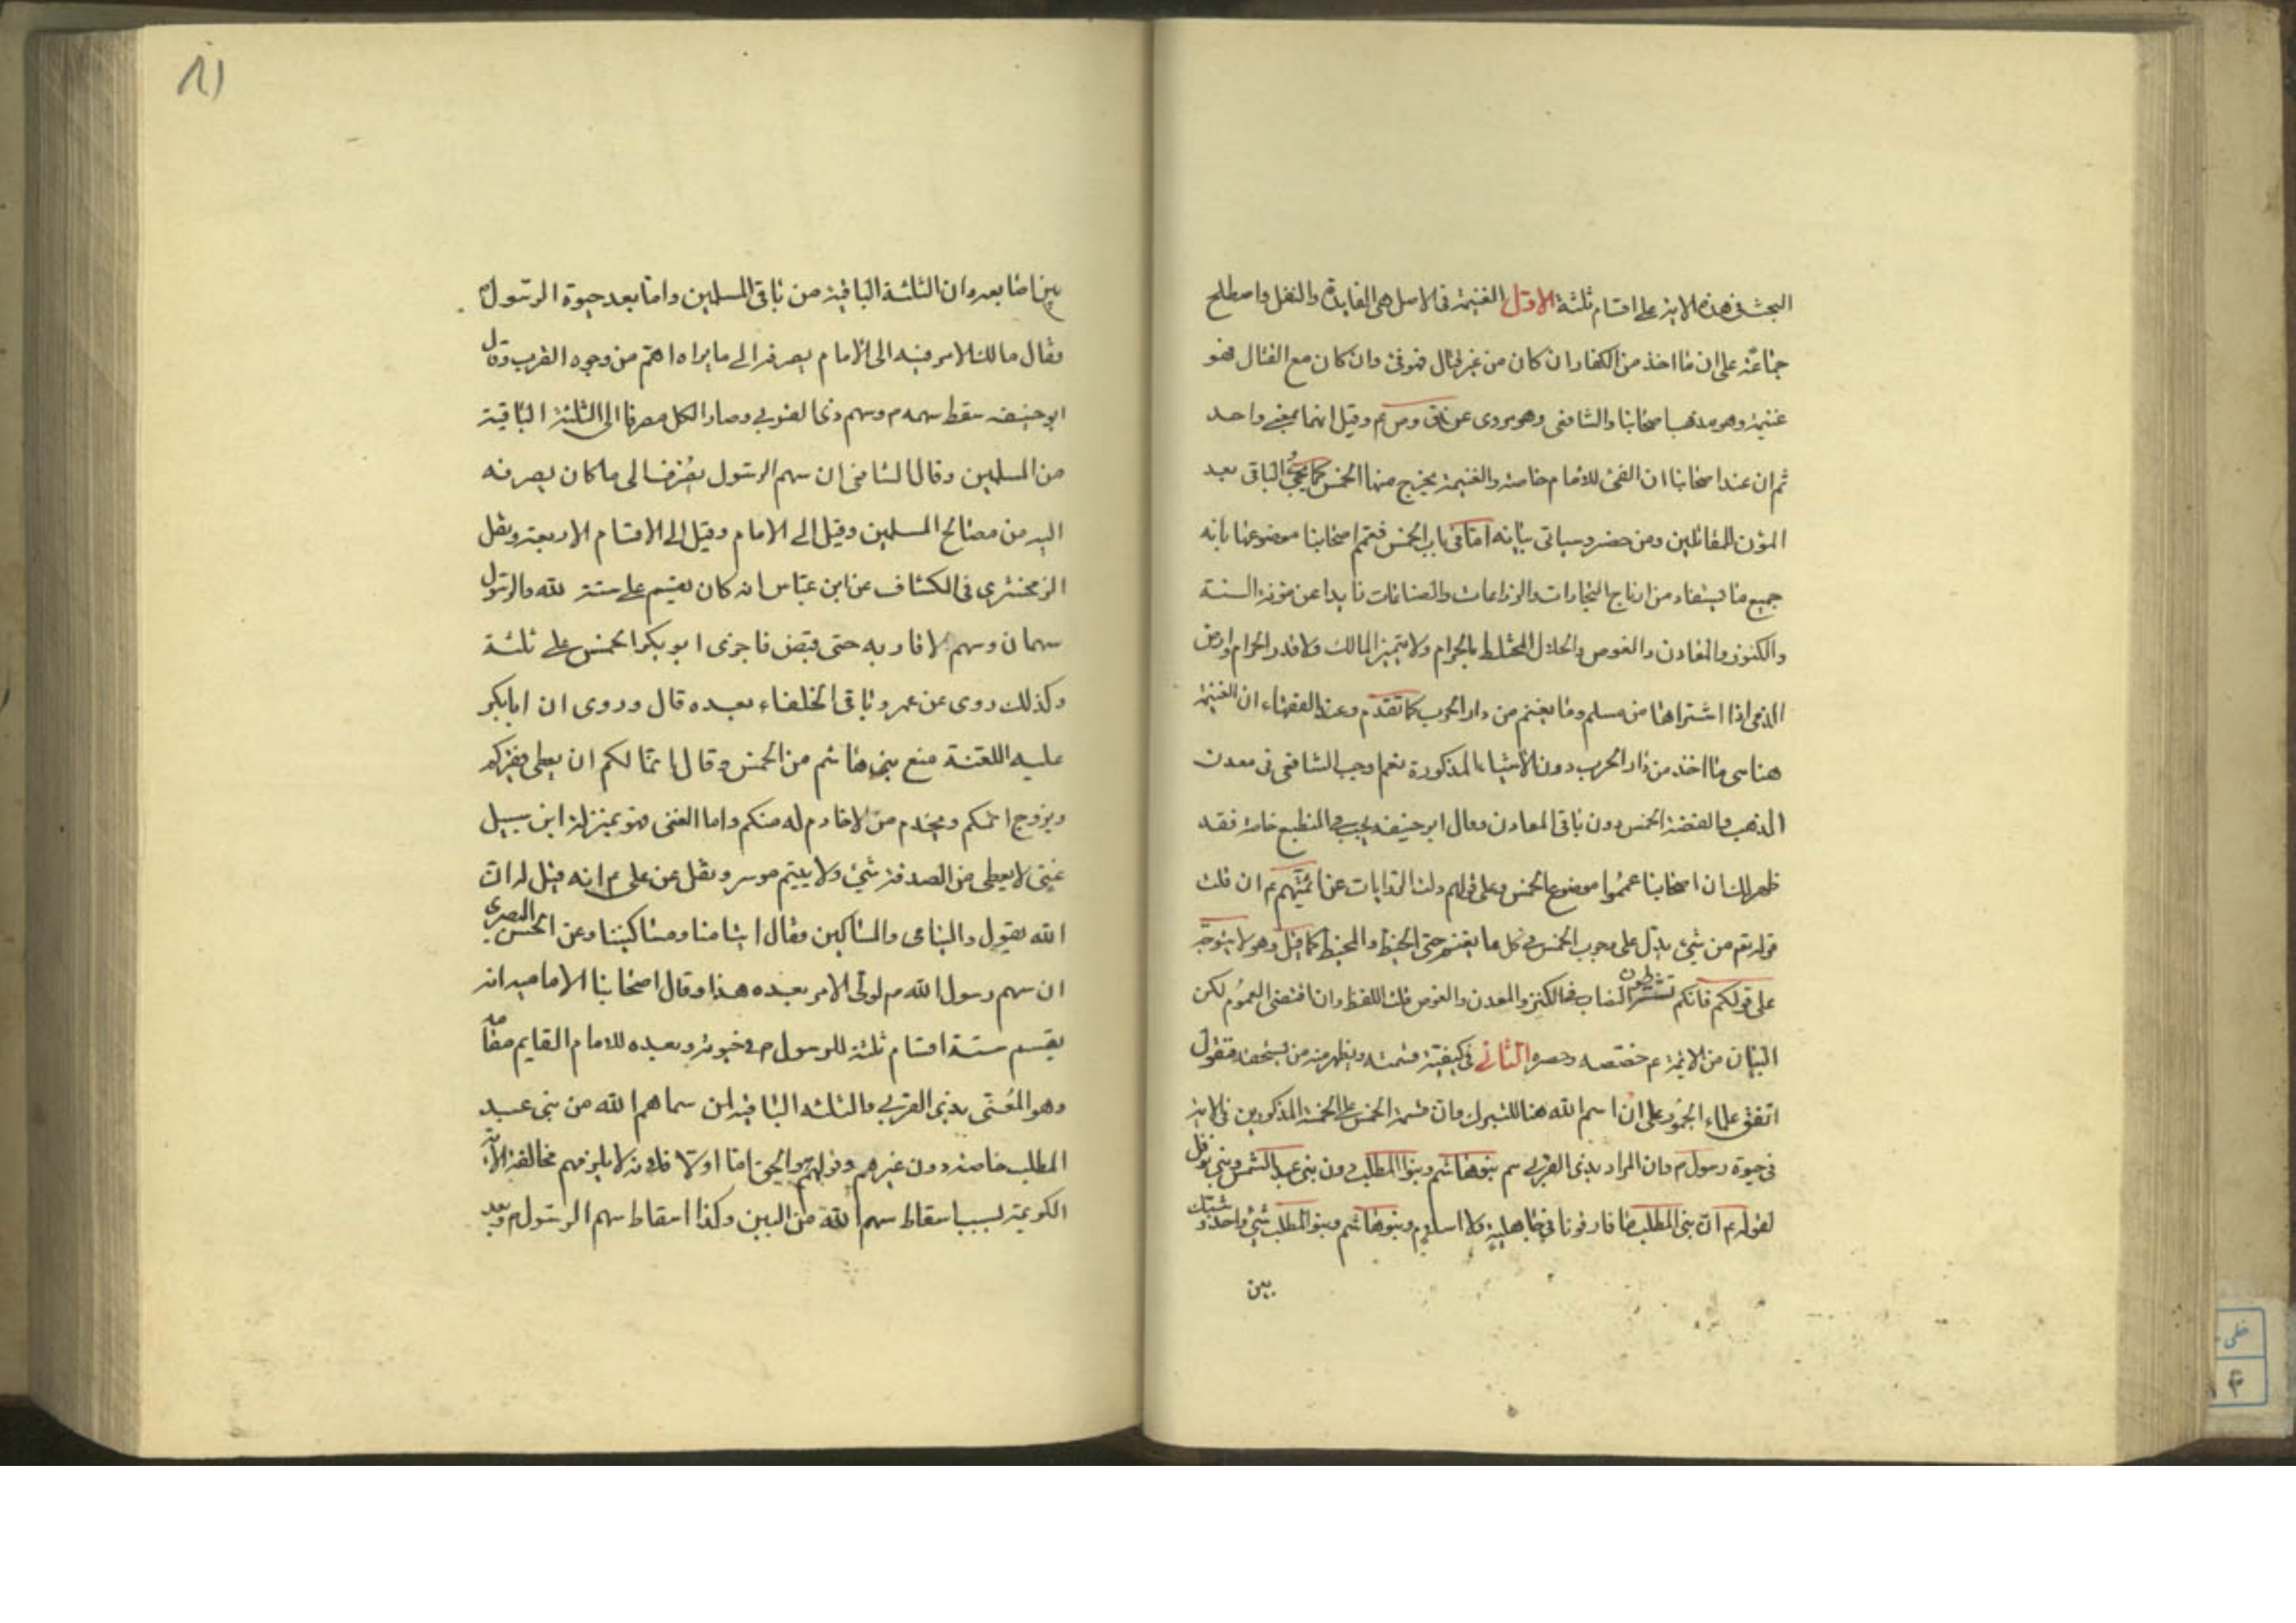 البحث فى هذه الاية على اقسام ثلثة الاول الغنيمة فى الاصل هى الفايدة والنفل واصطلح
جماعة على ان ما اخذ من الكفار ان كان من غير قتال فهو فئ وان كان مع القتال فهو
غنيمة وهو مذهب اصحابنا والشافعى وهو مروى عن ق وص ع وقيل انهما بمعنى واحد
ثم ان عند اصحابنا ان الفئ للامام خاصة والغنيمة يخرج منها الخمس الباقى بعد
المؤن للمقاتلين ومن حضر وسياتى بيانه اما فى باب الخمس فعمم اصحابنا موضوعها بانه
جميع ما يستفاد من ارباح التجارات والزراعات والصناعات زايدا عن مؤنة السنة
والكنوز والمعادن والغوص والحلال المختلط بالحرام ولا يتميز المالك ولا قدر الحرام وارض
الذمى اذا اشتراها من مسلم وما يغنم من دار الحرب كما تقدم وعند الفقهاء ان الغنيمة
هنا هى ما اخذ من دار الحرب دون الاشياء المذكورة نعم اوجب الشافعى فى معدن
الذهب والفضة الخمس دون باقى المعادن وقال ابو حنيفه يجب فى المنطبع خاصة فقد
ظهر لك ان اصحابنا عمموا موضوع الخمس وعلى قولهم دلت الروايات عن ائمتهم ع ان قلت
قوله تع من شئ يدل على وجوب الخمس فى كل ما يغنم حتى الخيط والمخيط كما قيل وهو لا يتوجه
على قولكم فانكم تشترطون النصاب فى الكنز والمعدن والغوص قلت اللفظ وان اقتضى العموم لكن
البيان من الائمة ع خصصه وحصره الثانى فى كيفية قسمته ويظهر منه من يستحقه فنقول
اتفق علماء الجمهور على ان اسم الله هنا للتبرك وان قسمة الخمس على الخمسة المذكورين فى الاية
فى حيوة رسول ص وان المراد بذى القربى هم بنو هاشم وبنوا المطلب دون بنى عبد الشمس وبنى نوفل
لقوله ع ان بنى المطلب ما فارقونا فى جاهلية ولا اسلام وبنو هاشم وبنو المطلب شئ واحد وشبك
بين
بين اصابعه وان الثلثة الباقية من باقى المسلمين واما بعد حيوة الرسول
فقال مالك الامر فيه الى الامام يصرفه الى ما يراه اهم من وجوه القرب وقال
ابو حنيفه سقط سهمه ص وسهم ذى القربى وصار الكل مصرفا الى الثلثة الباقية
من المسلمين وقال الشافعى ان سهم الرسول يصرف الى ما كان يصرفه
اليه من مصالح المسلمين وقيل الى الامام وقيل الى الاقسام الاربعة ونقل
الزمخشرى فى الكشاف عن ابن عباس انه كان يقسم على ستة لله والرسول
سهمان وسهم لاقاربه حتى قبض فاجرى ابو بكر الخمس على ثلثة
وكذلك روى عن عمر وباقى الخلفاء بعده قال وروى ان ابابكر
عليه اللعنة منع بنى هاشم من الخمس وقال انما لكم ان يعطى فقيركم
ويزوج ايمكم ويخدم من لا خادم له منكم واما الغنى فهو بمنزلة ابن سبيل
غنى لا يعطى من الصدقة شئ ولا يتيم موسر ونقل عن على ع انه قيل له ان
الله يقول واليتامى والمساكين فقال ايتامنا ومساكيننا وعن الحسن البصرى
ان سهم رسول الله ص لولى الامر بعده هذا وقال اصحابنا الامامية انه
يقسم ستة اقسام ثلثة للرسول ص فى حيوته وبعده للامام القايم مقامه
وهو المعنى بذى القربى والثلثه الباقية لمن سماهم الله من بنى عبد
المطلب خاصة دون غيرهم وقولهم هو الحق اما اولا فلانه لا يلزمهم مخالفة الاية
الكريمة بسبب اسقاط سهم الله من البين وكذا اسقاط سهم الرسول ص بعد